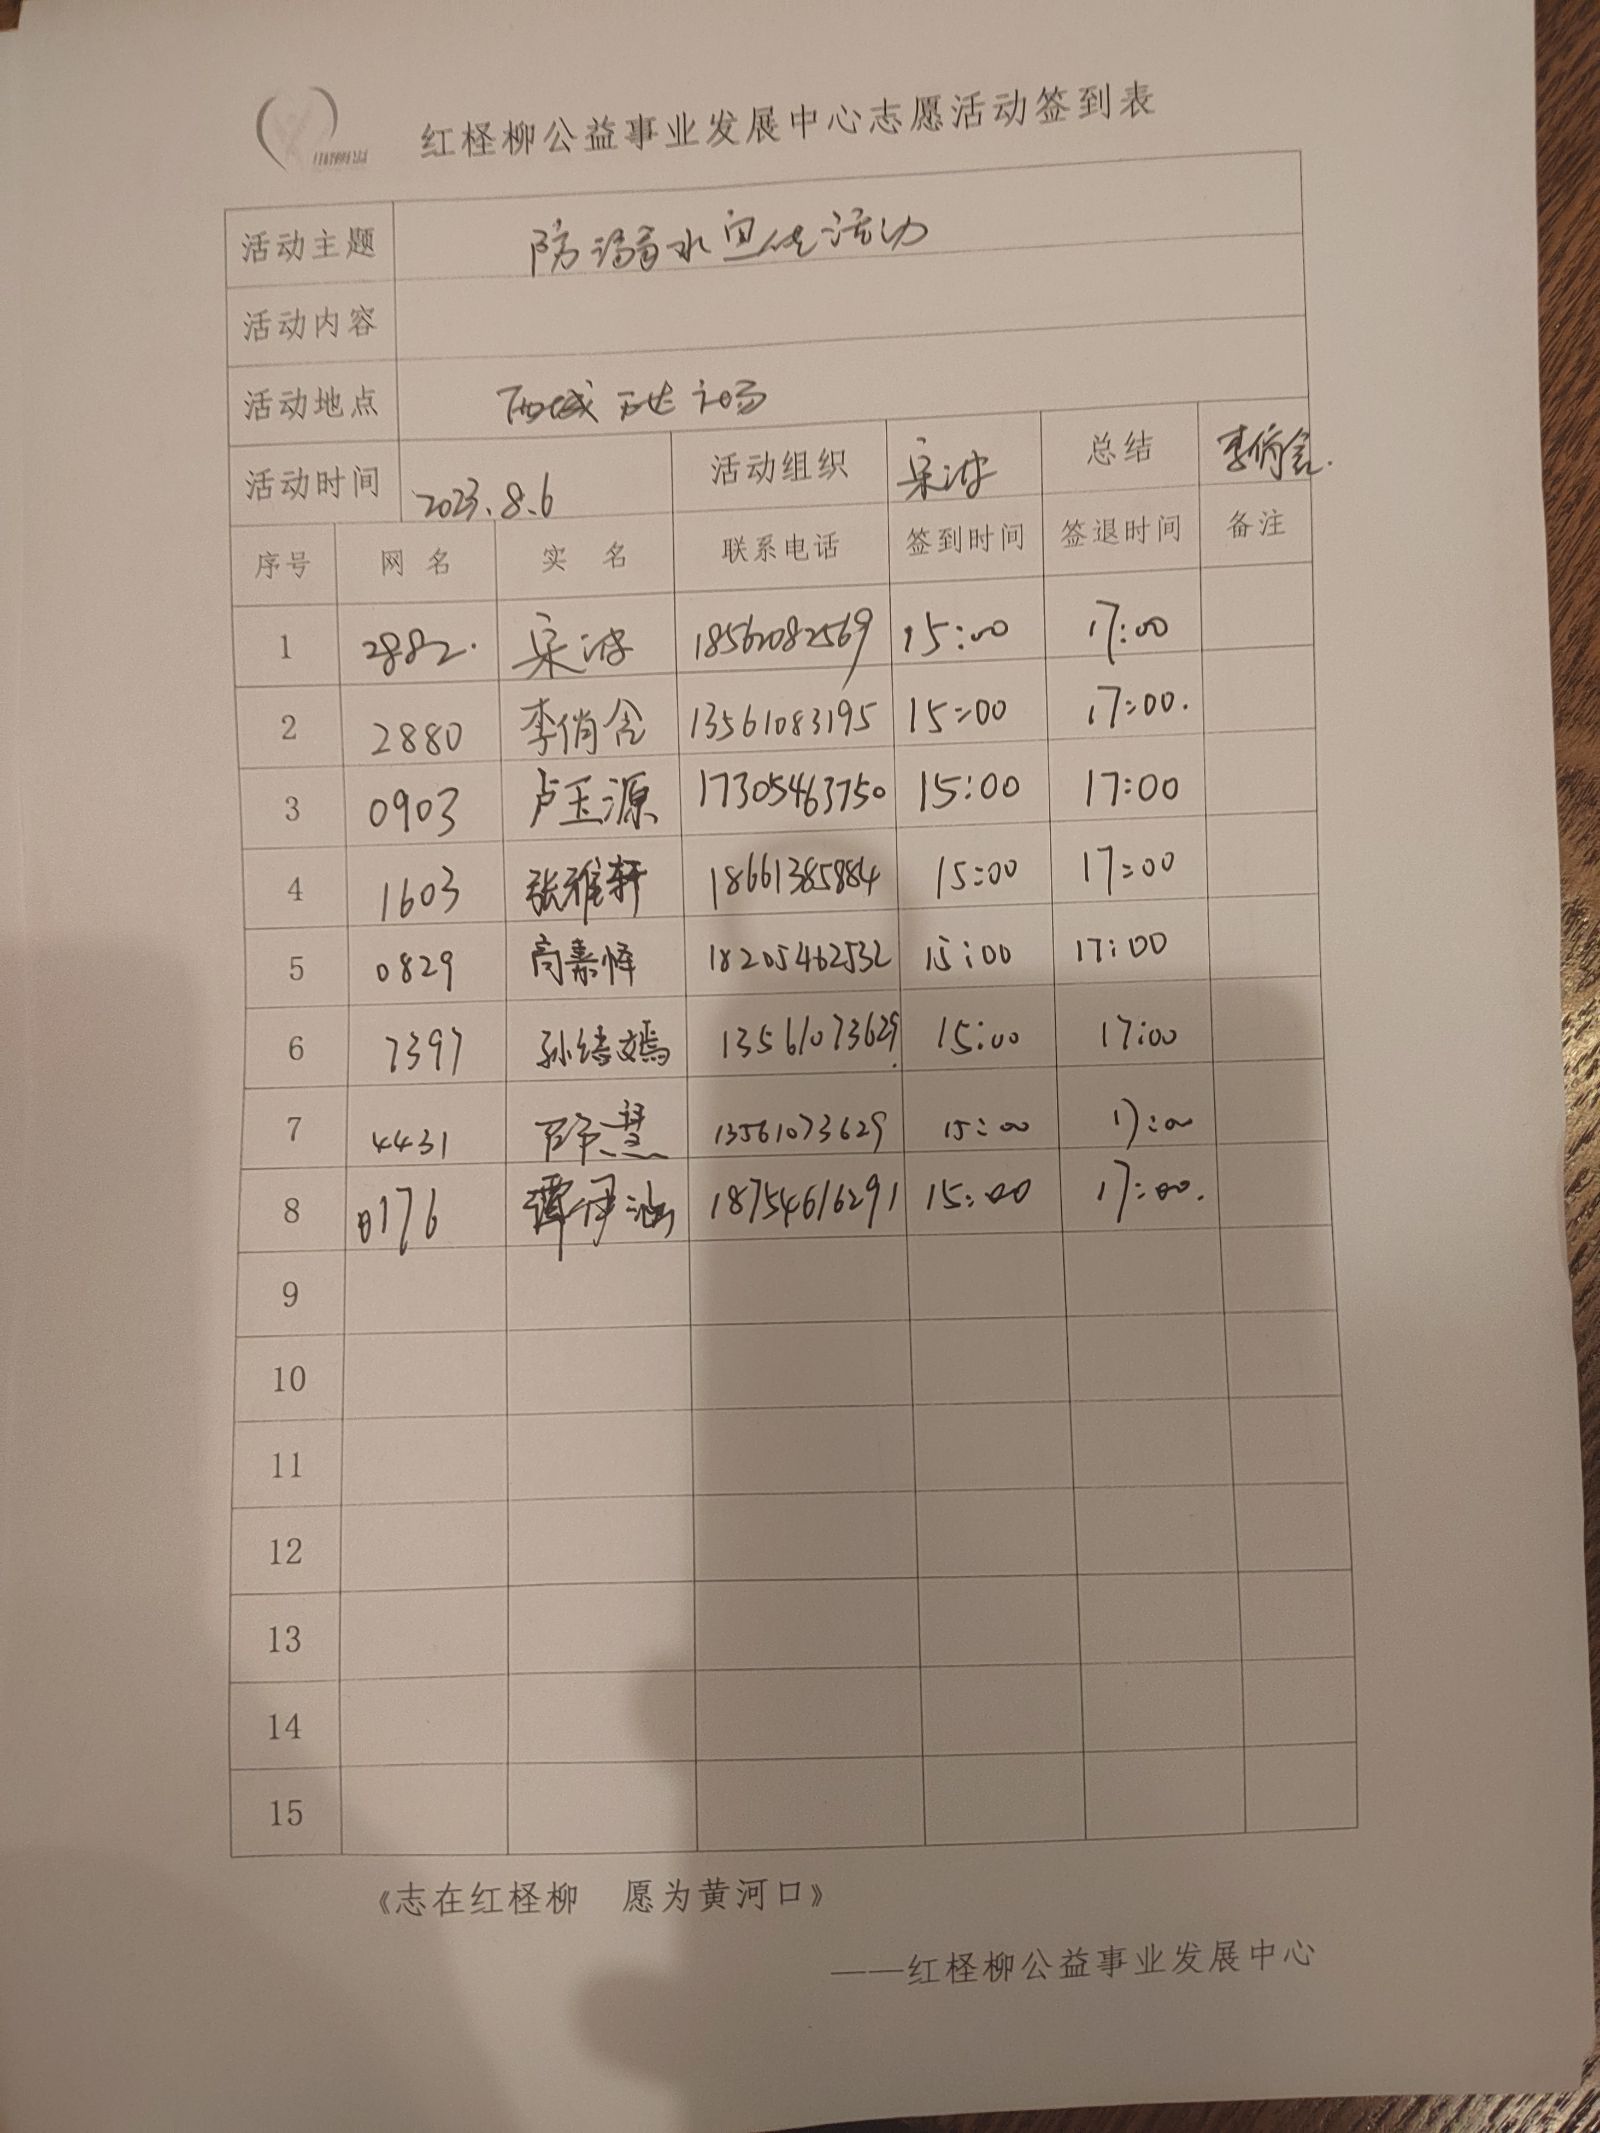 红柽柳公益事业发展中心志愿活动签到表
活动主题 防溺水宣传活动
活动内容
活动地点 西城万达广场
活动时间 2023.8.6 活动组织 宋波 总结 李俏含.
序号 网名 实名 联系电话 签到时间 签退时间 备注
1 2882. 宋波 18562082569 15:00 17:00
2 2880 李俏含 13561083195 15:00 17:00.
3 0903 卢玉源 17305463750 15:00 17:00
4 1603 张雅轩 18661385884 15:00 17:00
5 0829 高嘉怿 18205462532 15:00 17:00
6 7397 孙绮嫣 13561073629. 15:00 17:00
7 4431 薛慧 13561073629 15:00 17:00
8 0176 谭伊涵 18754616291 15:00 17:00.
9
10
11
12
13
14
15
《志在红柽柳 愿为黄河口》
——红柽柳公益事业发展中心